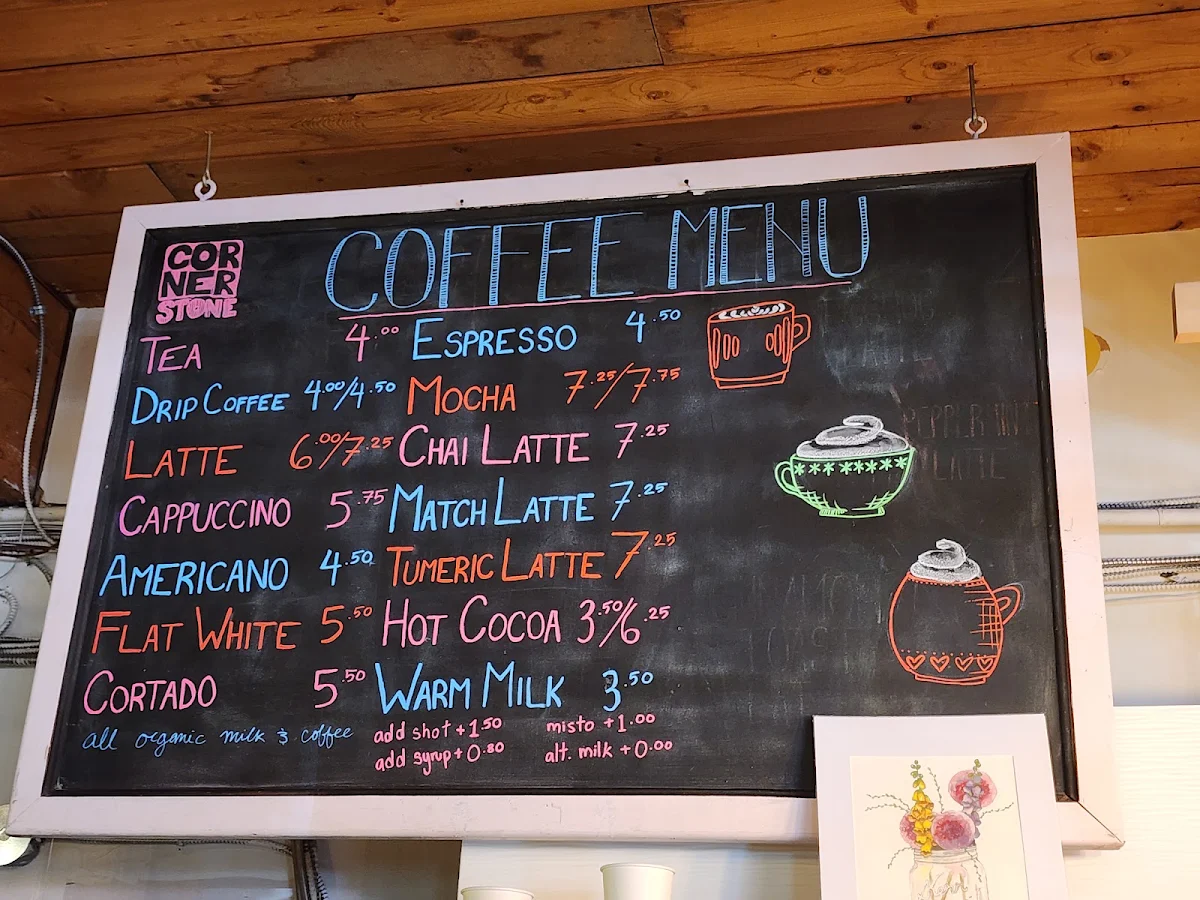 COR
NER
STONE
COFFEE MENU
TEA 4.00
DRIP COFFEE 4.00/4.50
LATTE 6.00/7.25
CAPPUCCINO 5.75
AMERICANO 4.50
FLAT WHITE 5.50
CORTADO 5.50
all organic milk & coffee
ESPRESSO 4.50
MOCHA 7.25/7.75
CHAI LATTE 7.25
MATCH LATTE 7.25
TUMERIC LATTE 7.25
HOT COCOA 3.50/6.25
WARM MILK 3.50
add shot +1.50
add syrup + 0.80
misto +1.00
alt. milk +0.00
PEPPERMINT
LATTE